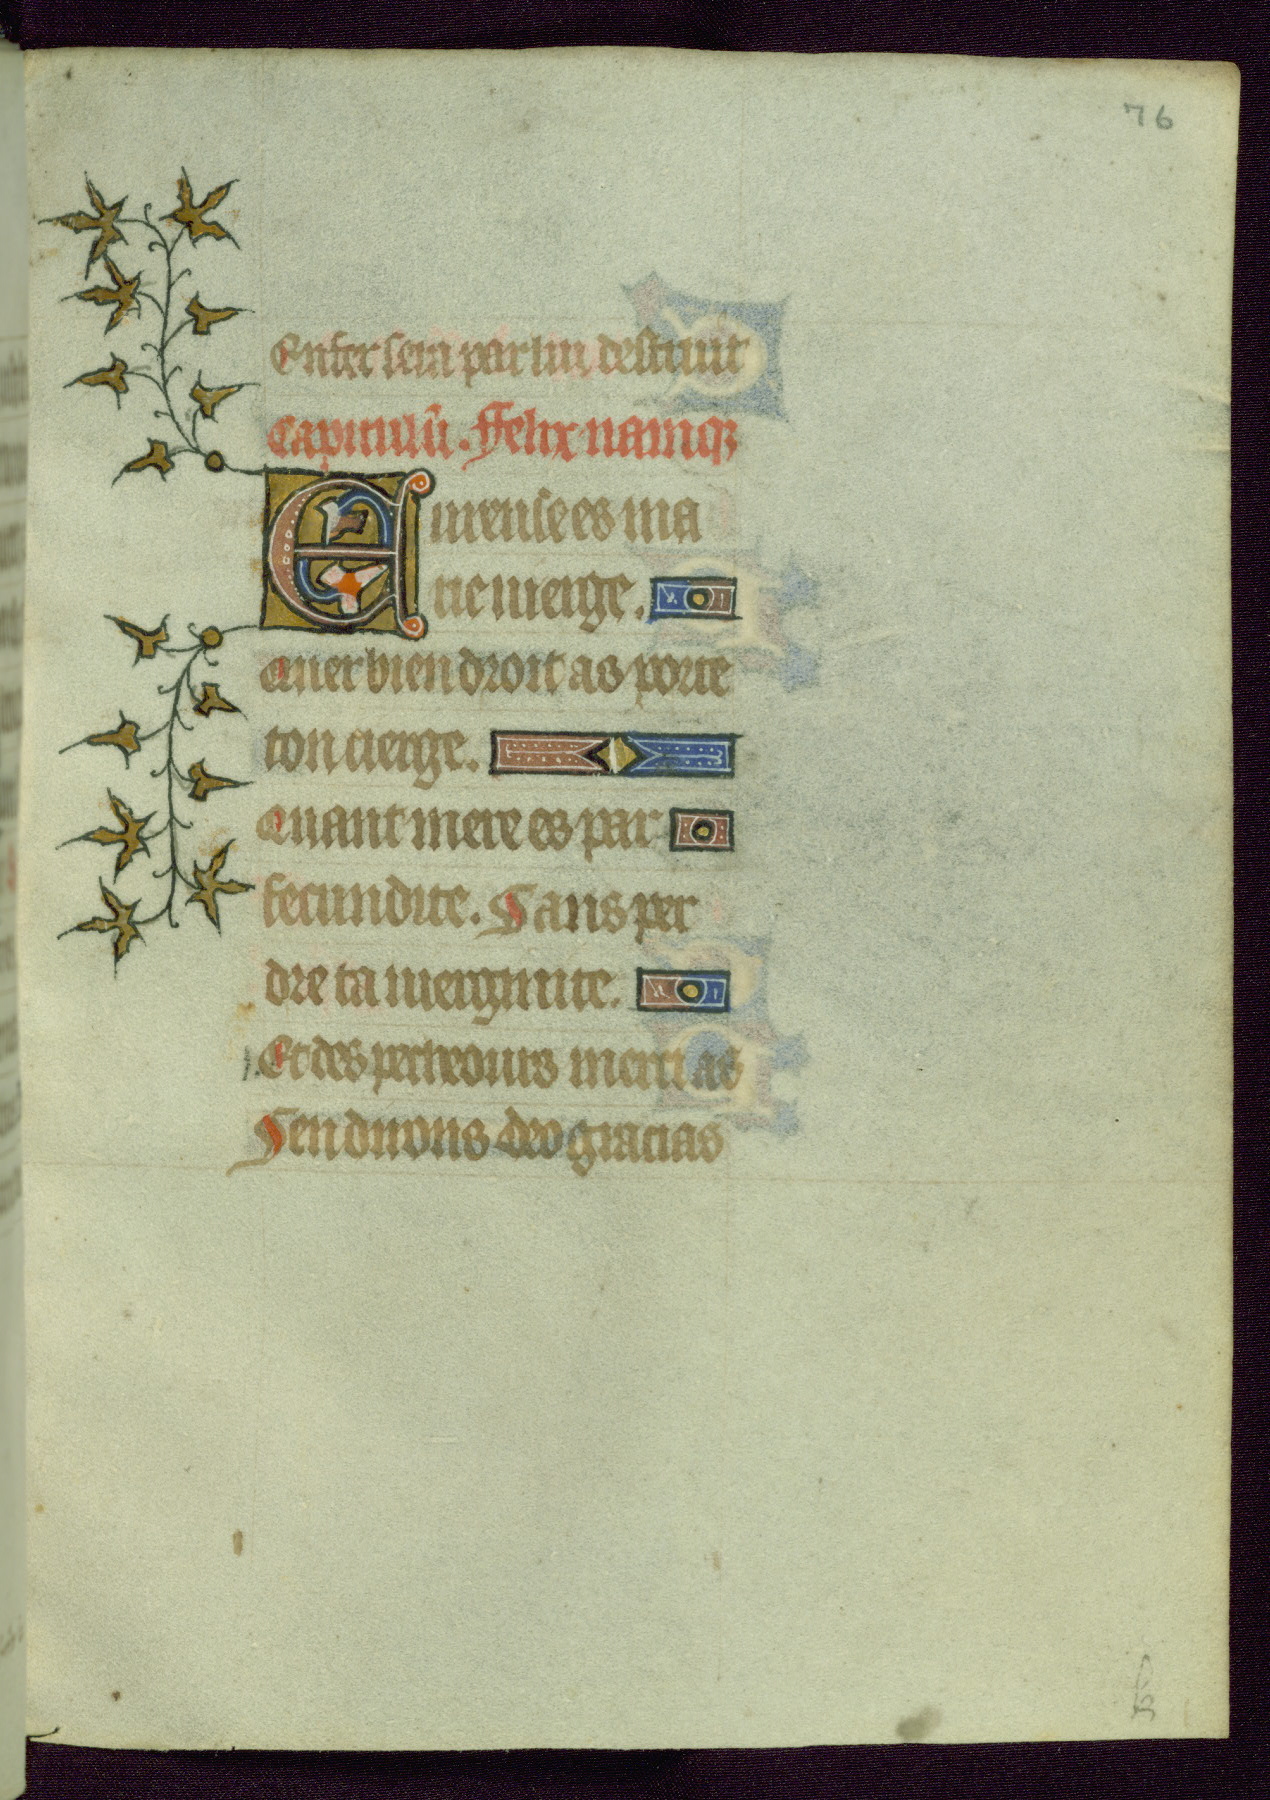 76
Enfer sera par lui destruit
Capitulū. Felix namq
Eurense es ma
rie uierge.
Auer bien droit as porte
ton cierge.
Quant mere es par
fecundite. Sans per
dre ta uierginite.
Et des pecheours merci as
Sen disons deo gracias